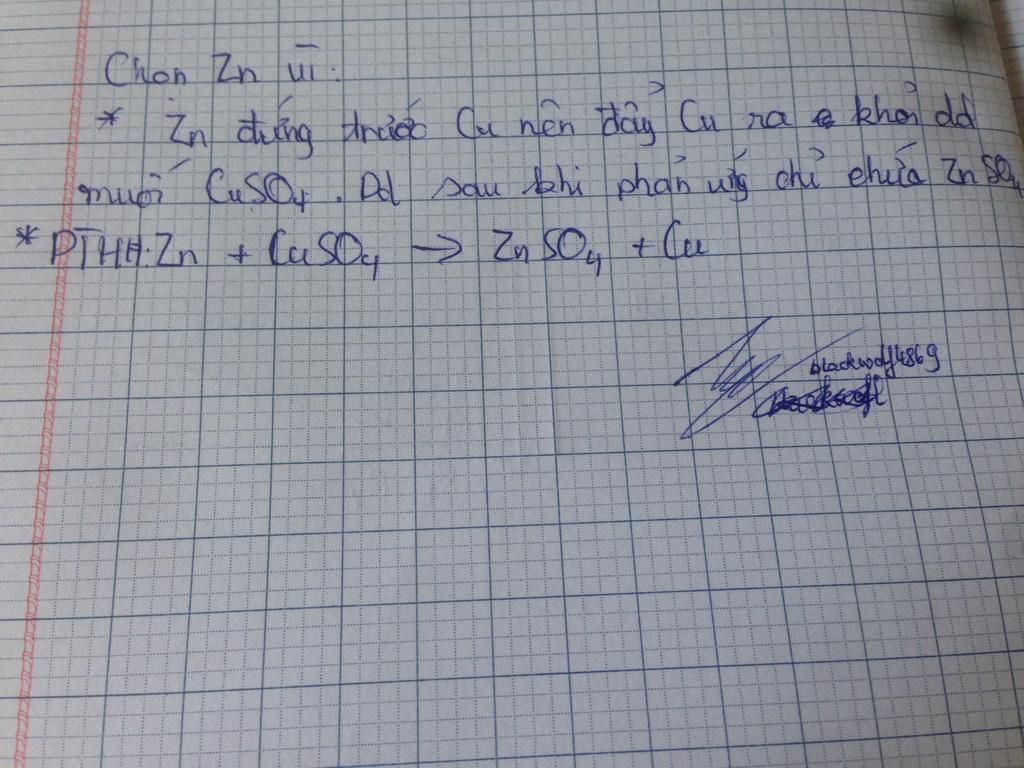 Chọn Zn vì:
* Zn đứng trước Cu nên đẩy Cu ra khỏi dd
muối CuSO4. Dd sau khi phản ứng chỉ chứa ZnSO4
* PTHH: Zn + CuSO4 → ZnSO4 + Cu
blackwolf4869